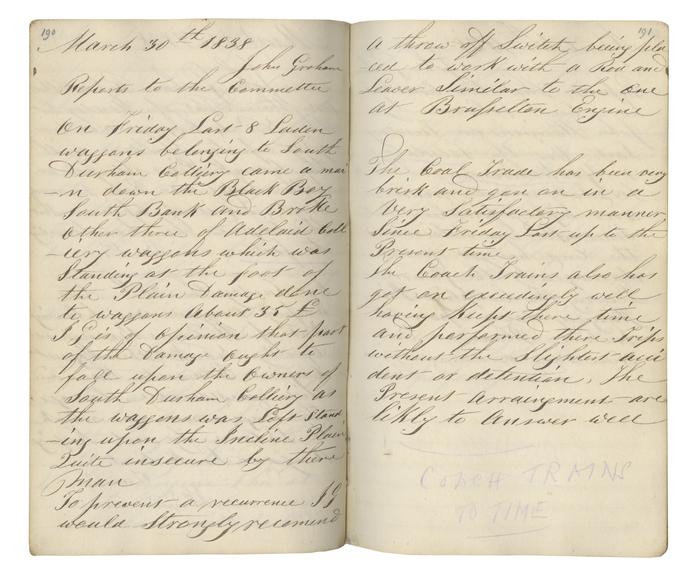 190
March 30th 1838
John Graham
Reports to the Committee
On Friday Last 8 Laden
waggons belonging to South
Durham Colliery came amai
-n down the Black Boy
South Bank and Broke
Other three of Adelaid Coll
-iery waggons which was
Standing at the foot of
the Plain Damage done
to waggons About 35 £
J G is of opinion that part
of the Damage Ought to
fall upon the Owners of
South Durham Colliery as
the waggons was Left Stand
-ing upon the Incline Plain
Quite insecure by there
Man
To prevent a recurrence J G
would Strongly recomend
191
a throw off Switch being pla
-ced to work with a Rod and
Leaver Similar to the One
at Brusselton Engine
The Coal Trade has been very
brisk and gon on in a
Very Satisfactory manner
Since Friday Last up to the
Present time
The Coach Trains also has
got on exceedingly well
having Kept there time
and performed there Trips
without the Slightest acci
dent or detention. The
Present Arraingment are
likly to Answer well
COACH TRAINS
TO TIME